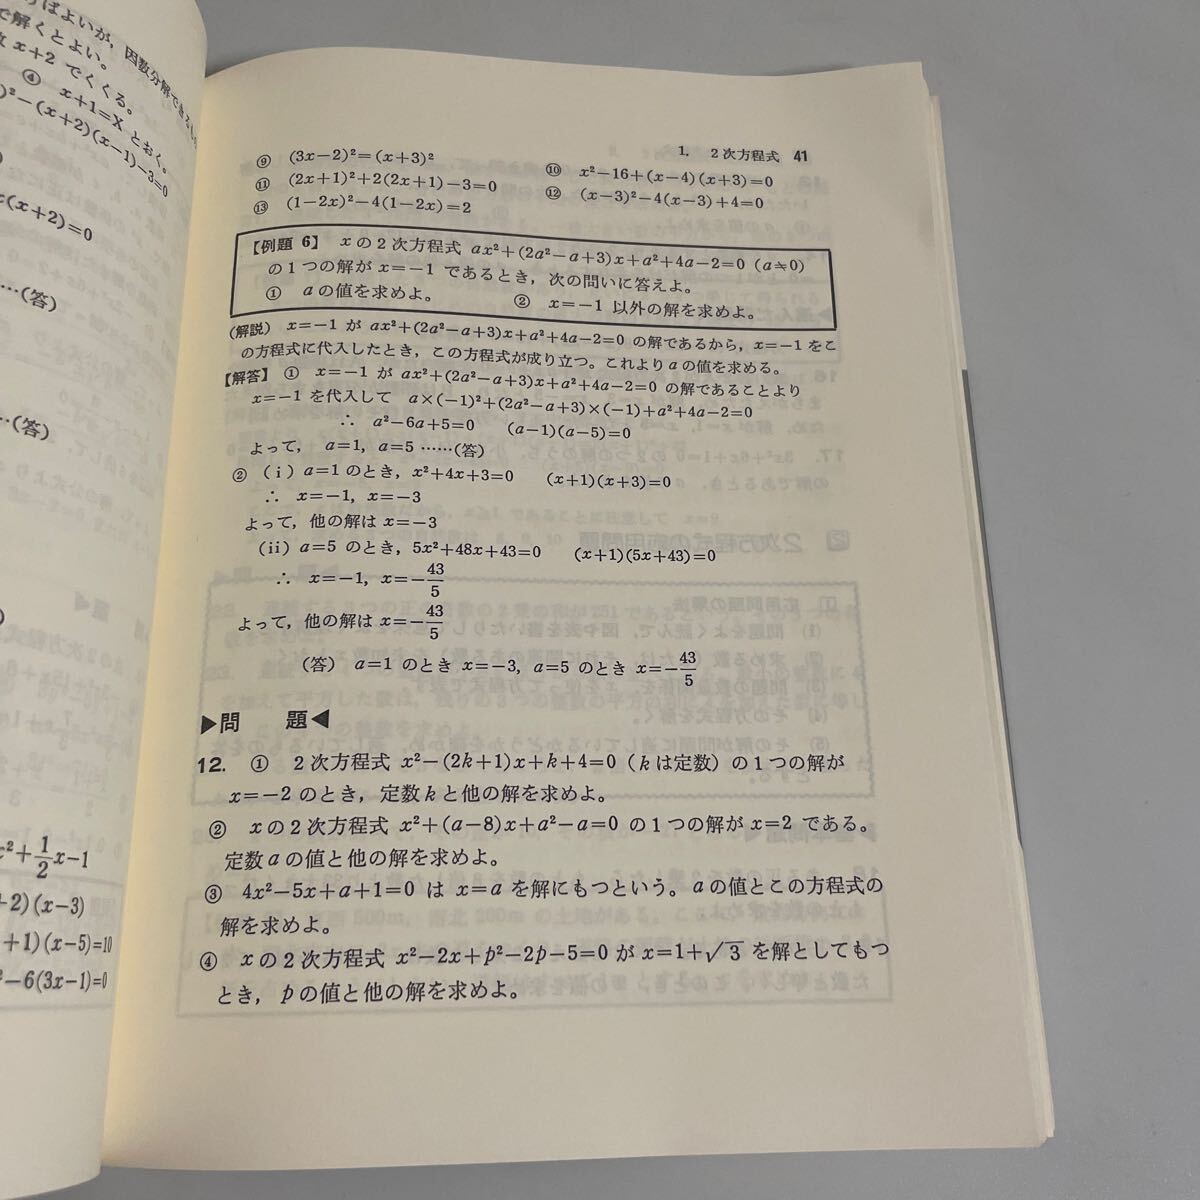 ばよいが，因数分解できる
で解くとよい。
x+2 でくくる。
④ x+1=X とおく。
)²−(x+2)(x−1)−3=0
(x+2)=0
……(答)
…(答)
x²+1/2x−1
+2)(x−3)
+1)(x−5)=10
²−6(3x−1)=0
1. 2次方程式 41
⑨ (3x−2)²=(x+3)² ⑩ x²−16+(x−4)(x+3)=0
⑪ (2x+1)²+2(2x+1)−3=0 ⑫ (x−3)²−4(x−3)+4=0
⑬ (1−2x)²−4(1−2x)=2
【例題 6】 xの2次方程式 ax²+(2a²−a+3)x+a²+4a−2=0 (a≠0)
の1つの解が x=−1 であるとき，次の問いに答えよ。
① aの値を求めよ。 ② x=−1 以外の解を求めよ。
(解説) x=−1 が ax²+(2a²−a+3)x+a²+4a−2=0 の解であるから，x=−1 をこ
の方程式に代入したとき，この方程式が成り立つ。これより aの値を求める。
【解答】 ① x=−1 が ax²+(2a²−a+3)x+a²+4a−2=0 の解であることより
x=−1 を代入して a×(−1)²+(2a²−a+3)×(−1)+a²+4a−2=0
∴ a²−6a+5=0 (a−1)(a−5)=0
よって，a=1, a=5 ……(答)
② (i) a=1 のとき，x²+4x+3=0 (x+1)(x+3)=0
∴ x=−1, x=−3
よって，他の解は x=−3
(ii) a=5 のとき，5x²+48x+43=0 (x+1)(5x+43)=0
∴ x=−1, x=−43/5
よって，他の解は x=−43/5
(答) a=1 のとき x=−3, a=5 のとき x=−43/5
▶問 題◀
12. ① 2次方程式 x²−(2k+1)x+k+4=0 (kは定数) の1つの解が
x=−2 のとき，定数kと他の解を求めよ。
② xの2次方程式 x²+(a−8)x+a²−a=0 の1つの解が x=2 である。
定数aの値と他の解を求めよ。
③ 4x²−5x+a+1=0 は x=a を解にもつという。aの値とこの方程式の
解を求めよ。
④ xの2次方程式 x²−2x+p²−2p−5=0 が x=1+√3 を解としてもつ
とき，pの値と他の解を求めよ。